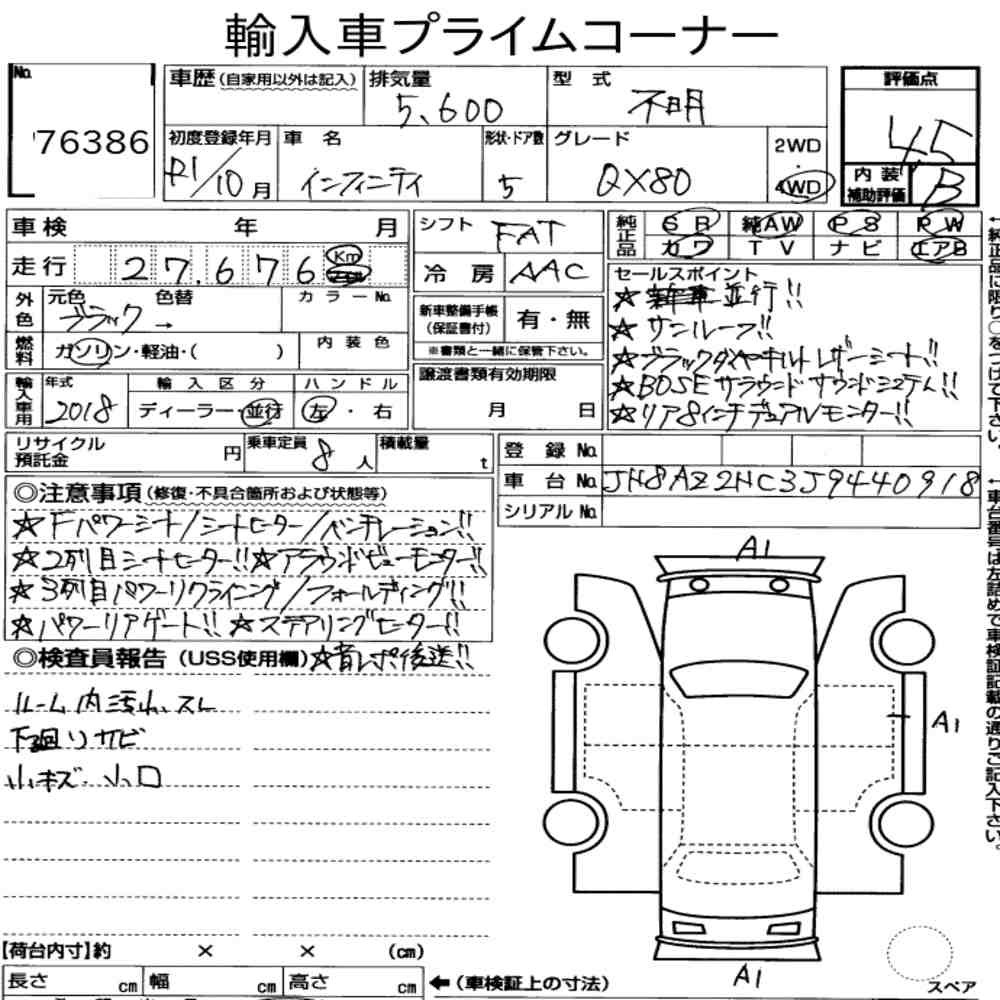 輸入車プライムコーナー
No.
76386
車歴(自家用以外は記入)
排気量
5,600
型 式
不明
評価点
4.5
初度登録年月
R1/10月
車 名
インフィニティ
形状・ドア数
5
グレード
QX80
2WD
・
4WD
内装
補助評価
B
車検 年 月
走行 27,676 Km
シフト
FAT
冷房
AAC
純正品
SR 純AW PS PW
カワ TV ナビ エアB
外色
元色 色替 カラーNo.
ブラック →
燃料
ガソリン・軽油・( )
内装色
新車整備手帳
(保証書付)
有・無
※書類と一緒に保管下さい。
セールスポイント
☆新車並行!!
☆サンルーフ!!
☆ブラックダイヤキルトレザーシート!!
☆BOSEサラウンドサウンドシステム!!
☆リア8インチデュアルモニター!!
輸入車用
年式
2018
輸入区分
ディーラー・並行
ハンドル
左・右
譲渡書類有効期限
月 日
リサイクル
預託金
円
乗車定員
8人
積載量
t
登録 No.
車台 No. JN8AZ2NC3J9440918
シリアル No.
◎注意事項(修復・不具合箇所および状態等)
☆Fパワーシート/シートヒーター/ベンチレーション!!
☆2列目シートヒーター!!☆アラウンドビューモニター!!
☆3列目パワーリクライニング/フォールディング!!
☆パワーリアゲート!! ☆ステアリングヒーター!!
◎検査員報告(USS使用欄)☆首レポ後送!!
ルーム内汚小、スレ
下廻りサビ
小キズ、小凹
A1
A1
A1
【荷台内寸】約 × × (cm)
長さ cm 幅 cm 高さ cm
←(車検証上の寸法)
スペア
←純正品に限り○をつけて下さい。
←車台番号は左詰めで車検証記載の通りご記入下さい。